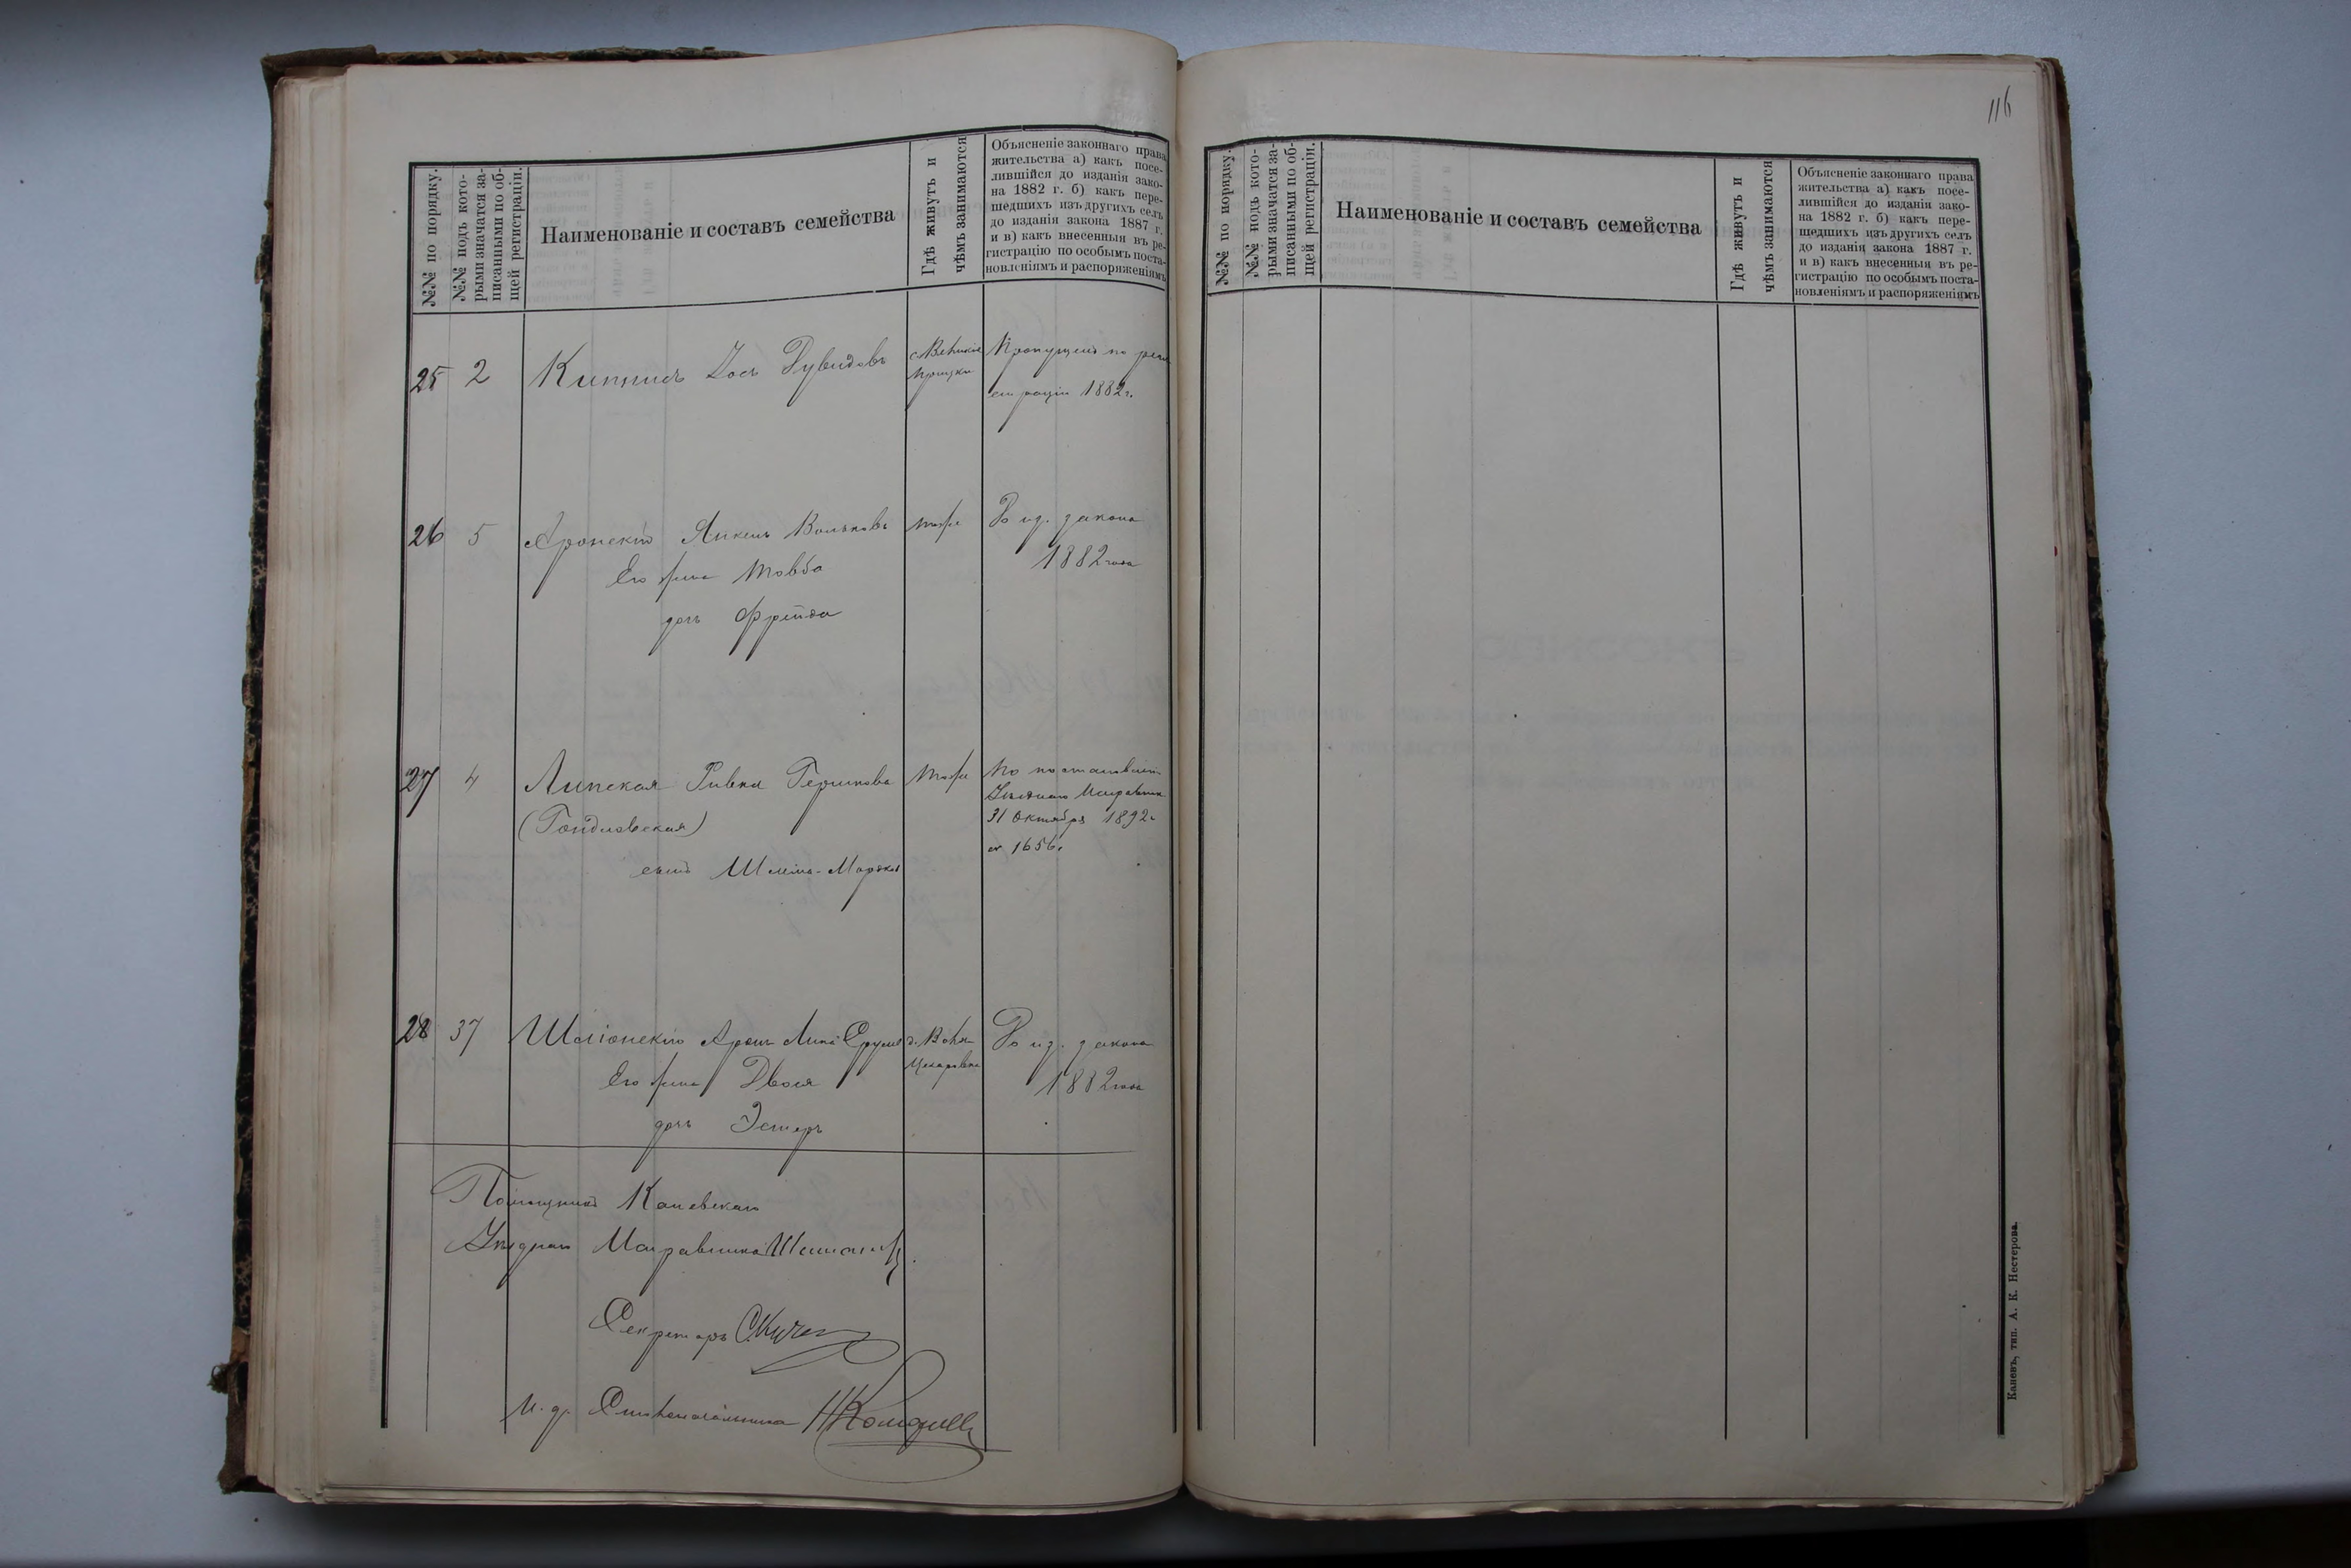 №№ по порядку.
№№ подъ кото-
рыми значатся за-
писанными по об-
щей регистраціи.
Наименованіе и составъ семейства
Гдѣ живутъ и
чѣмъ занимаются
Объясненіе законнаго права
жительства а) какъ посе-
лившійся до изданія зако-
на 1882 г. б) какъ пере-
шедшихъ изъ другихъ селъ
до изданія закона 1887 г.
и в) какъ внесенныя въ ре-
гистрацію по особымъ поста-
новленіямъ и распоряженіямъ
25 2 Кипписъ Іось Рувидовъ
Пропущенъ по реги
страціи 1882 г.
26 5 Аронскій Янкель Вольковъ тоже До из. закона
Его жена Товба 1882 года
дочь Фрейда
27 4 Липская Ривка Гершкова тоже По постановленію
(Гондловская) Уѣзднаго Исправника
31 Октября 1892 г.
№ 1656.
сынъ Шлема-Мордко
28 37 Шліонскій Аронъ Липа До из. закона
Его жена Двося 1882 года
дочь Эстеръ
Помощникъ Каневскаго
Уѣзднаго Исправника
Секретарь
И. д. Столоначальника
116
№№ по порядку.
№№ подъ кото-
рыми значатся за-
писанными по об-
щей регистраціи.
Наименованіе и составъ семейства
Гдѣ живутъ и
чѣмъ занимаются
Объясненіе законнаго права
жительства а) какъ посе-
лившійся до изданія зако-
на 1882 г. б) какъ пере-
шедшихъ изъ другихъ селъ
до изданія закона 1887 г.
и в) какъ внесенныя въ ре-
гистрацію по особымъ поста-
новленіямъ и распоряженіямъ
Каневъ, тип. А. К. Нестерова.